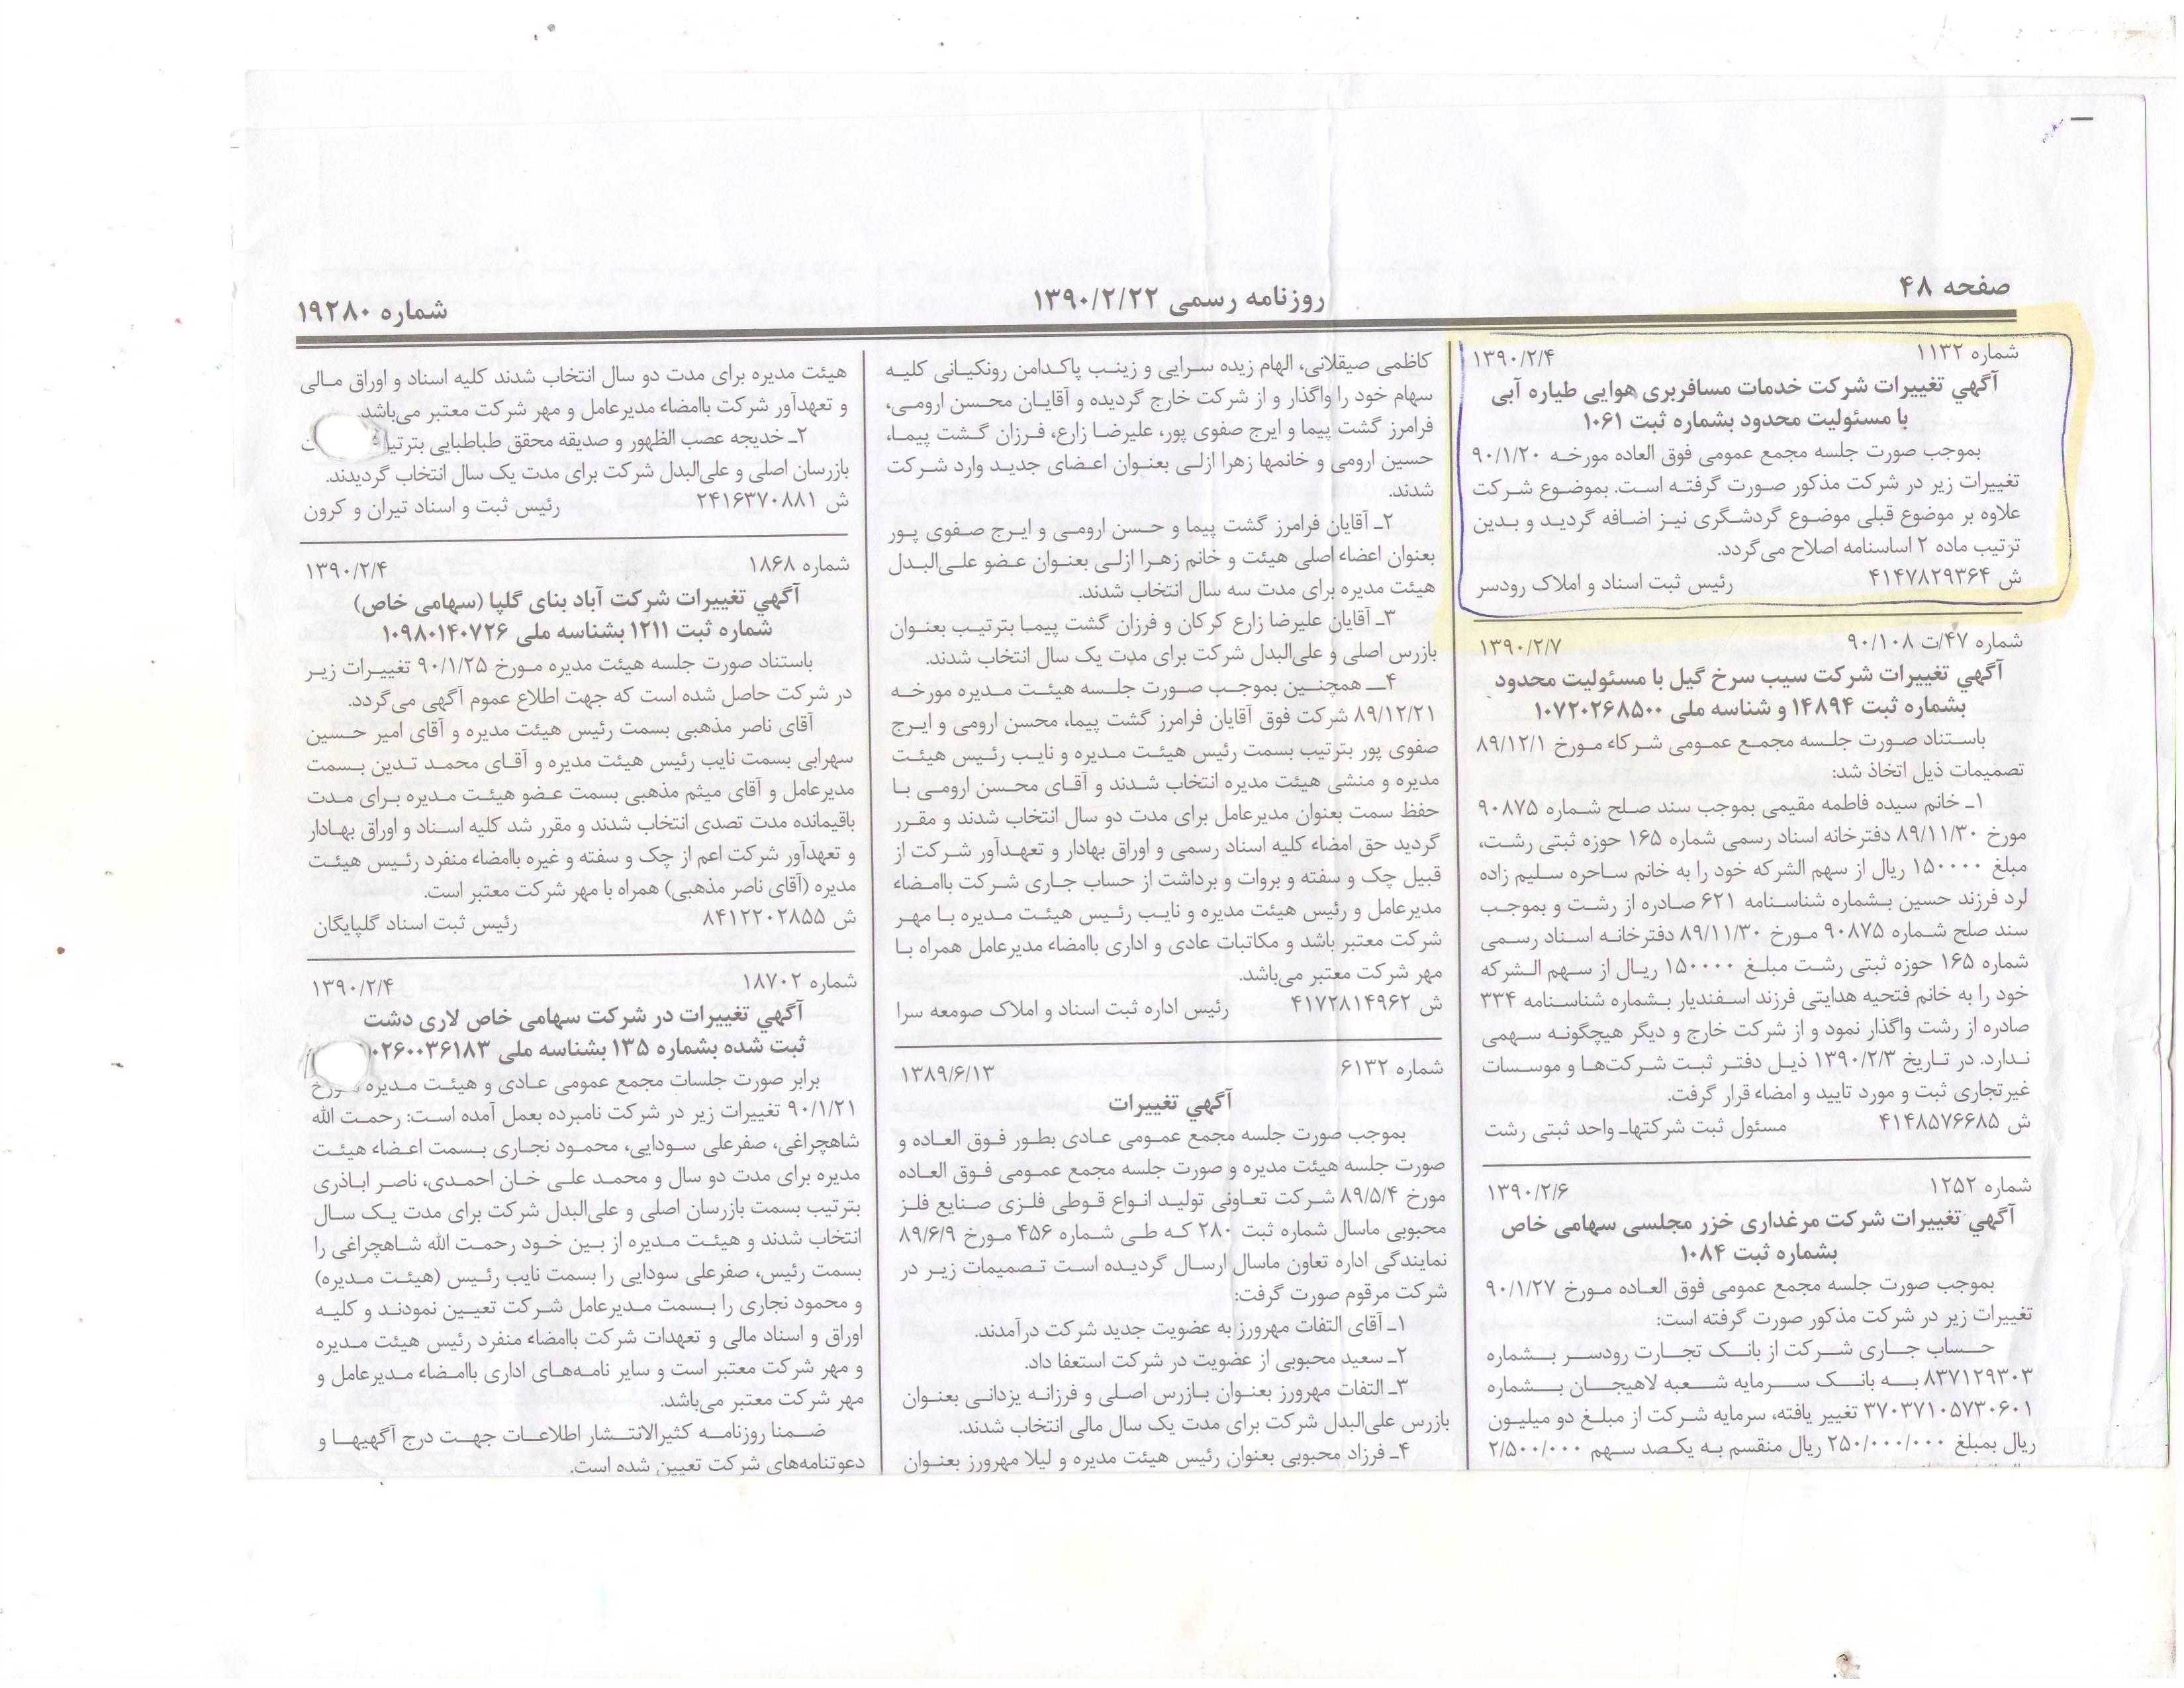 صفحه ۴۸
روزنامه رسمی ۱۳۹۰/۲/۲۲
شماره ۱۹۲۸۰
شماره ۱۱۳۲ ۱۳۹۰/۲/۴
آگهي تغييرات شرکت خدمات مسافربری هوایی طیاره آبی
با مسئولیت محدود بشماره ثبت ۱۰۶۱
بموجب صورت جلسه مجمع عمومی فوق العاده مورخه ۹۰/۱/۲۰
تغییرات زیر در شرکت مذکور صورت گرفته است. بموضوع شرکت
علاوه بر موضوع قبلی موضوع گردشگری نیز اضافه گردید و بدین
ترتیب ماده ۲ اساسنامه اصلاح می‌گردد.
ش ۴۱۴۷۸۲۹۳۶۴ رئیس ثبت اسناد و املاک رودسر
شماره ۴۷/ت ۹۰/۱۰۸ ۱۳۹۰/۲/۷
آگهي تغييرات شرکت سیب سرخ گیل با مسئولیت محدود
بشماره ثبت ۱۴۸۹۴ و شناسه ملی ۱۰۷۲۰۲۶۸۵۰۰
باستناد صورت جلسه مجمع عمومی شرکاء مورخ ۸۹/۱۲/۱
تصمیمات ذیل اتخاذ شد:
۱ـ خانم سیده فاطمه مقیمی بموجب سند صلح شماره ۹۰۸۷۵
مورخ ۸۹/۱۱/۳۰ دفترخانه اسناد رسمی شماره ۱۶۵ حوزه ثبتی رشت،
مبلغ ۱۵۰۰۰۰ ریال از سهم الشرکه خود را به خانم ساحره سلیم زاده
لرد فرزند حسین بشماره شناسنامه ۶۲۱ صادره از رشت و بموجب
سند صلح شماره ۹۰۸۷۵ مورخ ۸۹/۱۱/۳۰ دفترخانه اسناد رسمی
شماره ۱۶۵ حوزه ثبتی رشت مبلغ ۱۵۰۰۰۰ ریال از سهم الشرکه
خود را به خانم فتحیه هدایتی فرزند اسفندیار بشماره شناسنامه ۳۳۴
صادره از رشت واگذار نمود و از شرکت خارج و دیگر هیچگونه سهمی
ندارد. در تاریخ ۱۳۹۰/۲/۳ ذیل دفتر ثبت شرکت‌ها و موسسات
غیرتجاری ثبت و مورد تایید و امضاء قرار گرفت.
ش ۴۱۴۸۵۷۶۶۸۵ مسئول ثبت شرکتهاـ واحد ثبتی رشت
شماره ۱۲۵۲ ۱۳۹۰/۲/۶
آگهي تغييرات شرکت مرغداری خزر مجلسی سهامی خاص
بشماره ثبت ۱۰۸۴
بموجب صورت جلسه مجمع عمومی فوق العاده مورخ ۹۰/۱/۲۷
تغییرات زیر در شرکت مذکور صورت گرفته است:
حساب جاری شرکت از بانک تجارت رودسر بشماره
۸۳۷۱۲۹۳۰۳ به بانک سرمایه شعبه لاهیجان بشماره
۳۷۰۳۷۱۰۵۷۳۰۶۰۱ تغییر یافته، سرمایه شرکت از مبلغ دو میلیون
ریال بمبلغ ۲۵۰/۰۰۰/۰۰۰ ریال منقسم به یکصد سهم ۲/۵۰۰/۰۰۰
کاظمی صیقلانی، الهام زیده سرایی و زینب پاکدامن رونکیانی کلیه
سهام خود را واگذار و از شرکت خارج گردیده و آقایان محسن ارومی،
فرامرز گشت پیما و ایرج صفوی پور، علیرضا زارع، فرزان گشت پیما،
حسین ارومی و خانمها زهرا ازلی بعنوان اعضای جدید وارد شرکت
شدند.
۲ـ آقایان فرامرز گشت پیما و حسن ارومی و ایرج صفوی پور
بعنوان اعضاء اصلی هیئت و خانم زهرا ازلی بعنوان عضو علی‌البدل
هیئت مدیره برای مدت سه سال انتخاب شدند.
۳ـ آقایان علیرضا زارع کرکان و فرزان گشت پیما بترتیب بعنوان
بازرس اصلی و علی‌البدل شرکت برای مدت یک سال انتخاب شدند.
۴ـ همچنین بموجب صورت جلسه هیئت مدیره مورخه
۸۹/۱۲/۲۱ شرکت فوق آقایان فرامرز گشت پیما، محسن ارومی و ایرج
صفوی پور بترتیب بسمت رئیس هیئت مدیره و نایب رئیس هیئت
مدیره و منشی هیئت مدیره انتخاب شدند و آقای محسن ارومی با
حفظ سمت بعنوان مدیرعامل برای مدت دو سال انتخاب شدند و مقرر
گردید حق امضاء کلیه اسناد رسمی و اوراق بهادار و تعهدآور شرکت از
قبیل چک و سفته و بروات و برداشت از حساب جاری شرکت باامضاء
مدیرعامل و رئیس هیئت مدیره و نایب رئیس هیئت مدیره با مهر
شرکت معتبر باشد و مکاتبات عادی و اداری باامضاء مدیرعامل همراه با
مهر شرکت معتبر می‌باشد.
ش ۴۱۷۲۸۱۴۹۶۲ رئیس اداره ثبت اسناد و املاک صومعه سرا
شماره ۶۱۳۲ ۱۳۸۹/۶/۱۳
آگهي تغييرات
بموجب صورت جلسه مجمع عمومی عادی بطور فوق العاده و
صورت جلسه هیئت مدیره و صورت جلسه مجمع عمومی فوق العاده
مورخ ۸۹/۵/۴ شرکت تعاونی تولید انواع قوطی فلزی صنایع فلز
محبوبی ماسال شماره ثبت ۲۸۰ که طی شماره ۴۵۶ مورخ ۸۹/۶/۹
نمایندگی اداره تعاون ماسال ارسال گردیده است تصمیمات زیر در
شرکت مرقوم صورت گرفت:
۱ـ آقای التفات مهرورز به عضویت جدید شرکت درآمدند.
۲ـ سعید محبوبی از عضویت در شرکت استعفا داد.
۳ـ التفات مهرورز بعنوان بازرس اصلی و فرزانه یزدانی بعنوان
بازرس علی‌البدل شرکت برای مدت یک سال مالی انتخاب شدند.
۴ـ فرزاد محبوبی بعنوان رئیس هیئت مدیره و لیلا مهرورز بعنوان
هیئت مدیره برای مدت دو سال انتخاب شدند کلیه اسناد و اوراق مالی
و تعهدآور شرکت باامضاء مدیرعامل و مهر شرکت معتبر می‌باشد.
۲ـ خدیجه عصب الظهور و صدیقه محقق طباطبایی
بازرسان اصلی و علی‌البدل شرکت برای مدت یک سال انتخاب گردیدند.
ش ۲۴۱۶۳۷۰۸۸۱ رئیس ثبت و اسناد تیران و کرون
شماره ۱۸۶۸ ۱۳۹۰/۲/۴
آگهي تغييرات شرکت آباد بنای گلپا (سهامی خاص)
شماره ثبت ۱۲۱۱ بشناسه ملی ۱۰۹۸۰۱۴۰۷۲۶
باستناد صورت جلسه هیئت مدیره مورخ ۹۰/۱/۲۵ تغییرات زیر
در شرکت حاصل شده است که جهت اطلاع عموم آگهی می‌گردد.
آقای ناصر مذهبی بسمت رئیس هیئت مدیره و آقای امیر حسین
سهرابی بسمت نایب رئیس هیئت مدیره و آقای محمد تدین بسمت
مدیرعامل و آقای میثم مذهبی بسمت عضو هیئت مدیره برای مدت
باقیمانده مدت تصدی انتخاب شدند و مقرر شد کلیه اسناد و اوراق بهادار
و تعهدآور شرکت اعم از چک و سفته و غیره باامضاء منفرد رئیس هیئت
مدیره (آقای ناصر مذهبی) همراه با مهر شرکت معتبر است.
ش ۸۴۱۲۲۰۲۸۵۵ رئیس ثبت اسناد گلپایگان
شماره ۱۸۷۰۲ ۱۳۹۰/۲/۴
آگهي تغییرات در شرکت سهامی خاص لاری دشت
ثبت شده بشماره ۱۳۵ بشناسه ملی ۰۲۶۰۰۳۶۱۸۳
برابر صورت جلسات مجمع عمومی عادی و هیئت مدیره مورخ
۹۰/۱/۲۱ تغییرات زیر در شرکت نامبرده بعمل آمده است: رحمت الله
شاهچراغی، صفرعلی سودایی، محمود نجاری بسمت اعضاء هیئت
مدیره برای مدت دو سال و محمد علی خان احمدی، ناصر اباذری
بترتیب بسمت بازرسان اصلی و علی‌البدل شرکت برای مدت یک سال
انتخاب شدند و هیئت مدیره از بین خود رحمت الله شاهچراغی را
بسمت رئیس، صفرعلی سودایی را بسمت نایب رئیس (هیئت مدیره)
و محمود نجاری را بسمت مدیرعامل شرکت تعیین نمودند و کلیه
اوراق و اسناد مالی و تعهدات شرکت باامضاء منفرد رئیس هیئت مدیره
و مهر شرکت معتبر است و سایر نامه‌های اداری باامضاء مدیرعامل و
مهر شرکت معتبر می‌باشد.
ضمنا روزنامه کثیرالانتشار اطلاعات جهت درج آگهیها و
دعوتنامه‌های شرکت تعیین شده است.